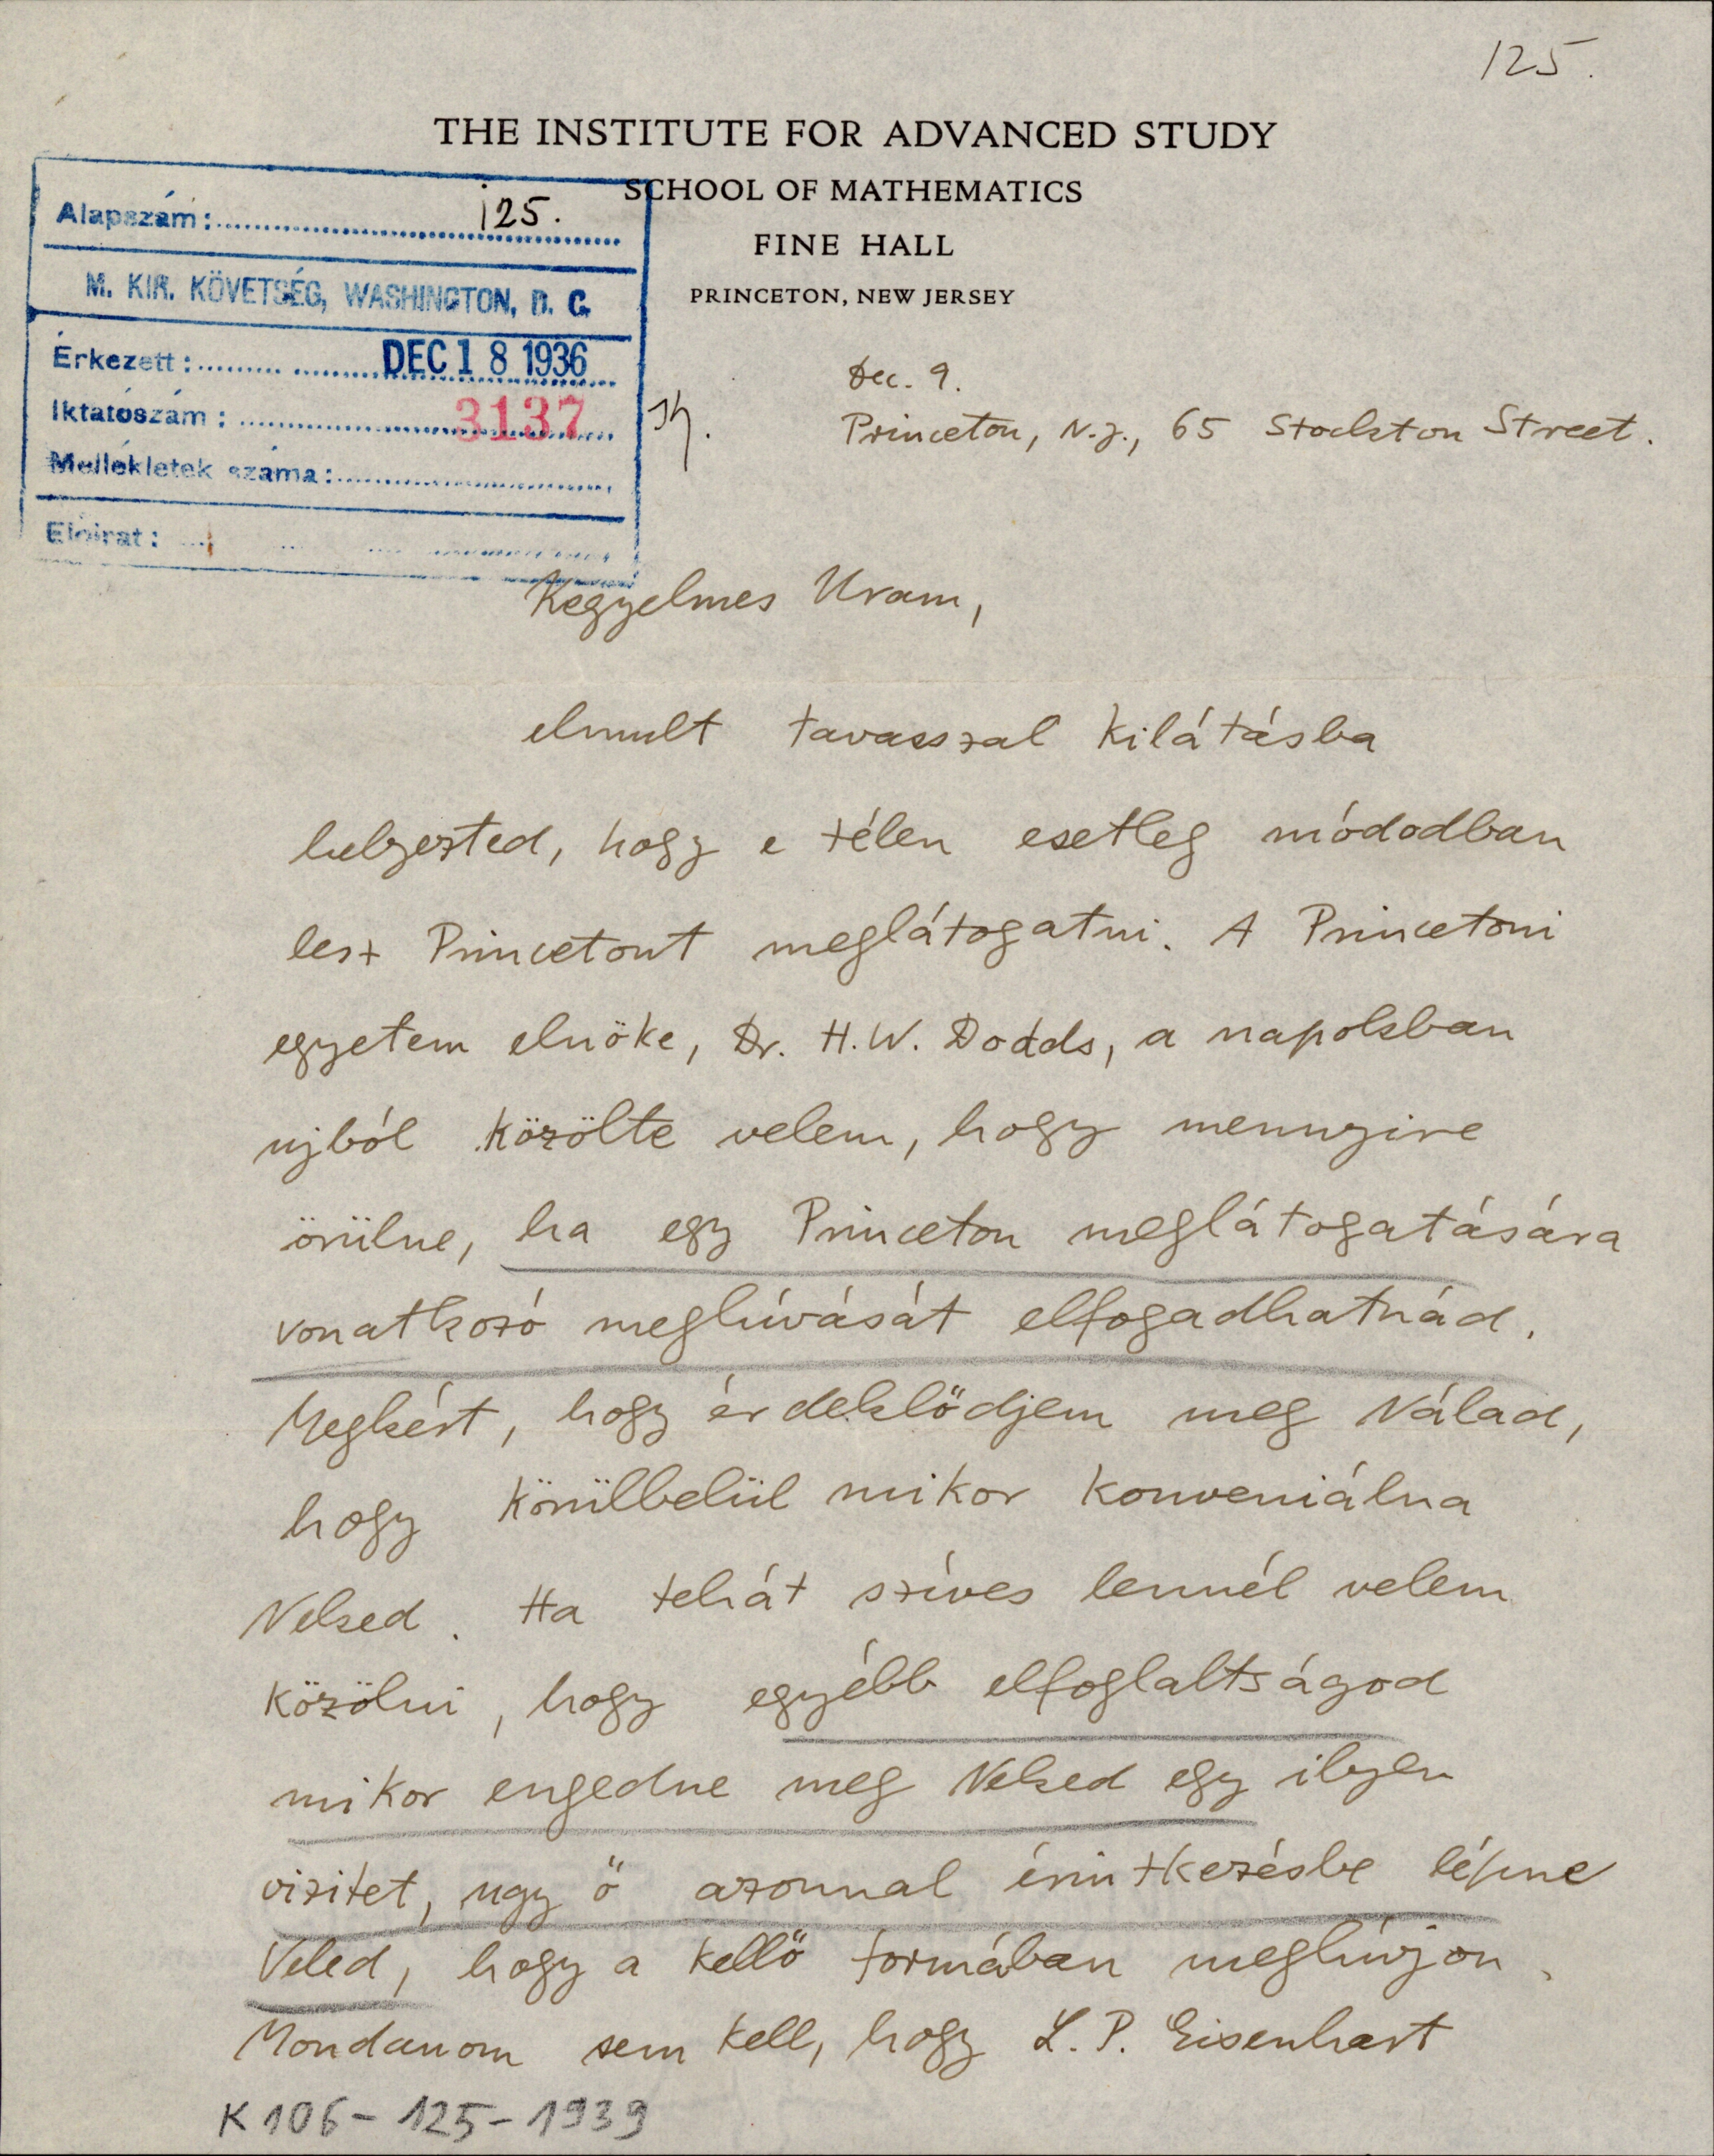 125.
THE INSTITUTE FOR ADVANCED STUDY
SCHOOL OF MATHEMATICS
FINE HALL
PRINCETON, NEW JERSEY
Alapszám: 125.
M. KIR. KÖVETSÉG, WASHINGTON, D. C.
Érkezett: DEC 18 1936
Iktatószám: 3137
Mellékletek száma:
Előirat:
Dec. 9.
Princeton, N.J., 65 Stockton Street.
Kegyelmes Uram,
elmult tavasszal kilátásba
helyezted, hogy e télen esetleg módodban
lesz Princetont meglátogatni. A Princetoni
egyetem elnöke, Dr. H.W. Dodds, a napokban
ujból közölte velem, hogy mennyire
örülne, ha egy Princeton meglátogatására
vonatkozó meghívását elfogadhatnád.
Megkért, hogy érdeklődjem meg Nálad,
hogy körülbelül mikor konveniálna
Neked. Ha tehát szíves lennél velem
közölni, hogy egyébb elfoglaltságod
mikor engedne meg Neked egy ilyen
vizitet, ugy ő azonnal érintkezésbe lépne
Veled, hogy a kellő formában meghívjon.
Mondanom sem kell, hogy L. P. Eisenhart
K 106-125-1939